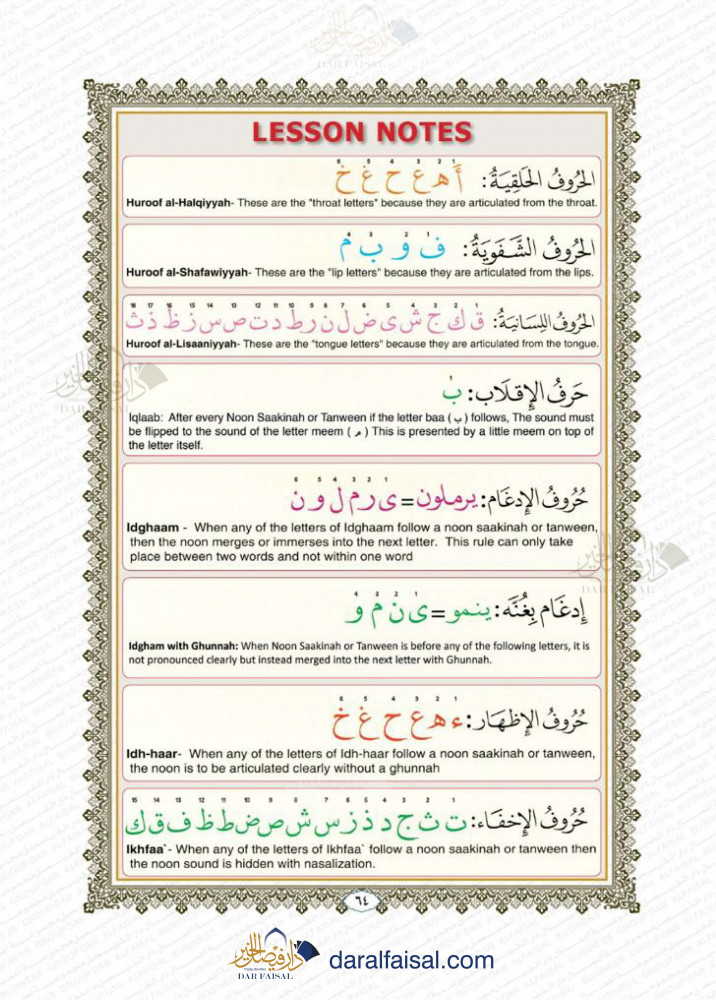 دار فيصل الخير
DAR FAISAL
LESSON NOTES
الحُرُوفُ الحَلَقِيَةُ: أ هـ ع ح غ خ
1 2 3 4 5 6
Huroof al-Halqiyyah- These are the "throat letters" because they are articulated from the throat.
الحُرُوفُ الشَّفَوِيَةُ: ف و ب م
1 2 3 4
Huroof al-Shafawiyyah- These are the "lip letters" because they are articulated from the lips.
الحُرُوفُ اللِسَانِيَةُ: ق ك ج ش ي ض ل ن ر ط د ت ص س ز ظ ذ ث
1 2 3 4 5 6 7 8 9 10 11 12 13 14 15 16 17 18
Huroof al-Lisaaniyyah- These are the "tongue letters" because they are articulated from the tongue.
حَرفُ الإِقلَاب: ب
1
Iqlaab: After every Noon Saakinah or Tanween if the letter baa ( ب ) follows, The sound must
be flipped to the sound of the letter meem ( م ) This is presented by a little meem on top of
the letter itself.
حُرُوفُ الإِدغَام: يرملون = ى ر م ل و ن
1 2 3 4 5 6
Idghaam - When any of the letters of Idghaam follow a noon saakinah or tanween,
then the noon merges or immerses into the next letter. This rule can only take
place between two words and not within one word
إِدغَام بِغُنَّه: ينمو = ى ن م و
1 2 3 4
Idgham with Ghunnah: When Noon Saakinah or Tanween is before any of the following letters, it is
not pronounced clearly but instead merged into the next letter with Ghunnah.
حُرُوفُ الإِظهَار: ء هـ ع ح غ خ
1 2 3 4 5 6
Idh-haar- When any of the letters of Idh-haar follow a noon saakinah or tanween,
the noon is to be articulated clearly without a ghunnah
حُرُوفُ الإِخفَاء: ت ث ج د ذ ز س ش ص ض ط ظ ف ق ك
1 2 3 4 5 6 7 8 9 10 11 12 13 14 15
Ikhfaa`- When any of the letters of Ikhfaa` follow a noon saakinah or tanween then
the noon sound is hidden with nasalization.
٦٤
دار فيصل الخير
DAR FAISAL
daralfaisal.com